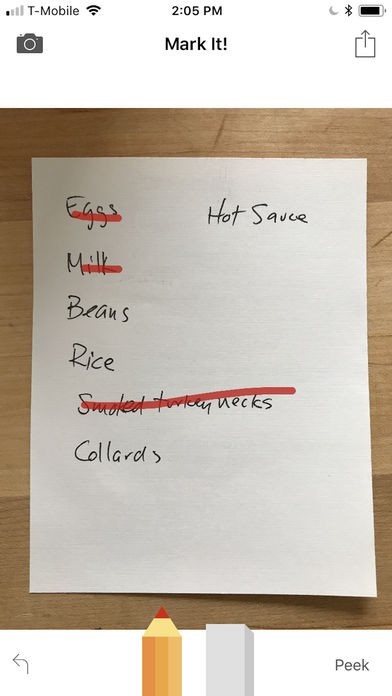 T-Mobile 2:05 PM
Mark It!
Eggs
Hot Sauce
Milk
Beans
Rice
Smoked turkey necks
Collards
Peek